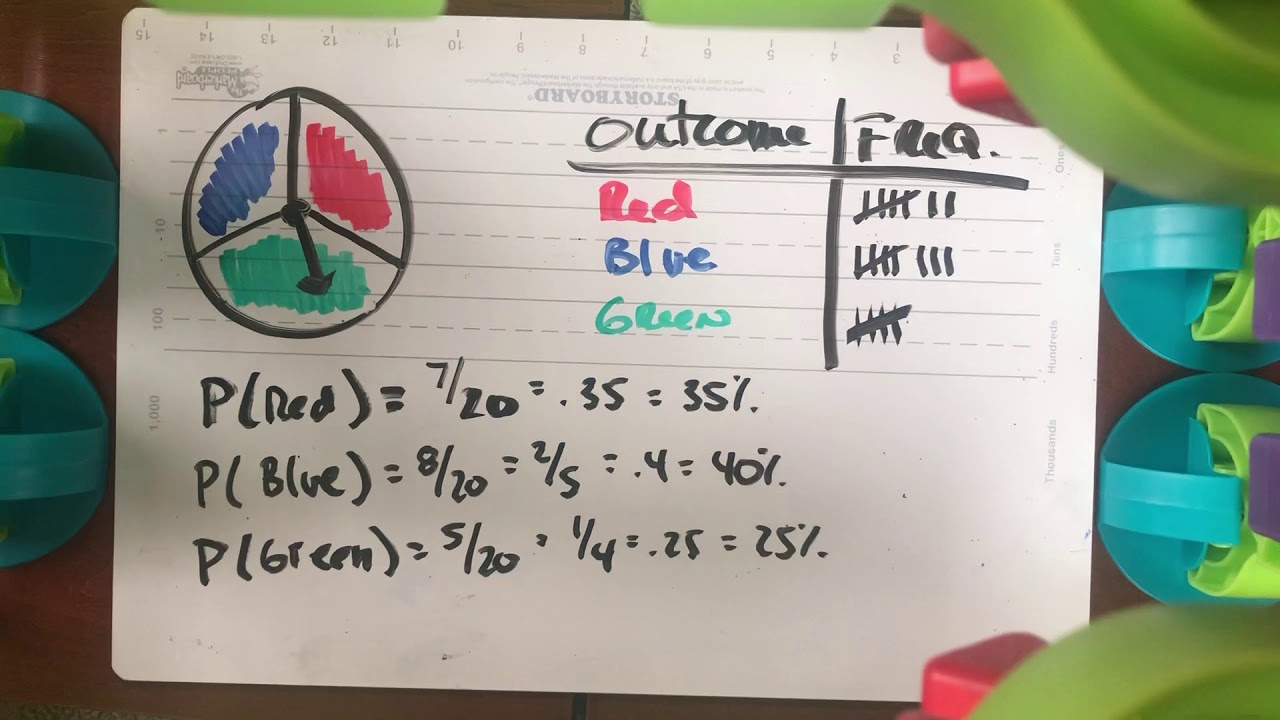 15 14 13 12 11 10 9 8 7 6 5 4 3
Markerboard
PEOPLE
STORYBOARD®
Outcome FReQ.
Red 卌 ||
Blue 卌 |||
Green 卌
P(Red) = 7/20 = .35 = 35%.
P(Blue) = 8/20 = 2/5 = .4 = 40%.
P(Green) = 5/20 = 1/4 = .25 = 25%.
1
10
100
1,000
Ones
Tens
Hundreds
Thousands